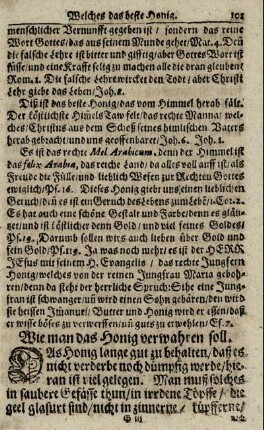 Welches das beste Honig. 101
menschlicher Vernunfft gegeben ist / sondern das reine
Wort Gottes / das aus seinem Munde gehet / Mat. 4. Den
die falsche Lehre ist bitter und gifftig / aber Gottes Wort ist
süsse und eine Krafft selig zu machen alle die dran gleuben /
Rom. 1. Die falsche Lehre wircket den Todt / aber Christi
Lehr giebt das Leben / Joh. 8.
Diß ist das beste Honig / das vom Himmel herab fält.
Der köstlichste Himels Taw selbst / das rechte Manna / wel-
ches / Christus aus dem Schoß seines himlischen Vaters
herab gebracht / und uns geoffenbaret / Joh. 6. Joh. 1.
Es ist das rechte Mel Arabicum, denn der Himmel ist
das felix Arabia, das reiche Land / da alles voll auff ist / als
Freude die Fülle / und lieblich Wesen zur Rechten Gottes
ewiglich / Ps. 16. Dieses Honig giebt uns einen lieblichen
Geruch / den es ist ein Geruch des Lebens zum Leben / 2. Cor. 2.
Es hat auch eine schöne Gestalt und Farbe / denn es glän-
tzet / und ist köstlicher denn Gold / und viel feines Goldes /
Ps. 19. Darumb sollen wirs auch lieben über Gold und
fein Gold / Ps. 119. Ja was noch mehr / es ist der HERR
JEsus mit seinem H. Evangelio / das rechte Jungfern
Honig / welches von der reinen Jungfrau Maria geboh-
ren / denn da steht der herrliche Spruch: Sihe eine Jung-
frau ist schwanger / uñ wird einen Sohn gebären / den wird
sie heissen Immanuel / Butter und Honig wird er essen / daß
er wisse böses zu verwerffen / uñ guts zu erwehlen / Es. 7.
Wie man das Honig verwahren soll.
DAs Honig lange gut zu behalten / daß es
nicht verderbe noch dümpfig werde / hie-
ran ist viel gelegen. Man muß solches
in saubere Gefässe thun / in irrdene Töpffe / die
geel glasurt sind / nicht in zinnerne / küpfferne /
G iij